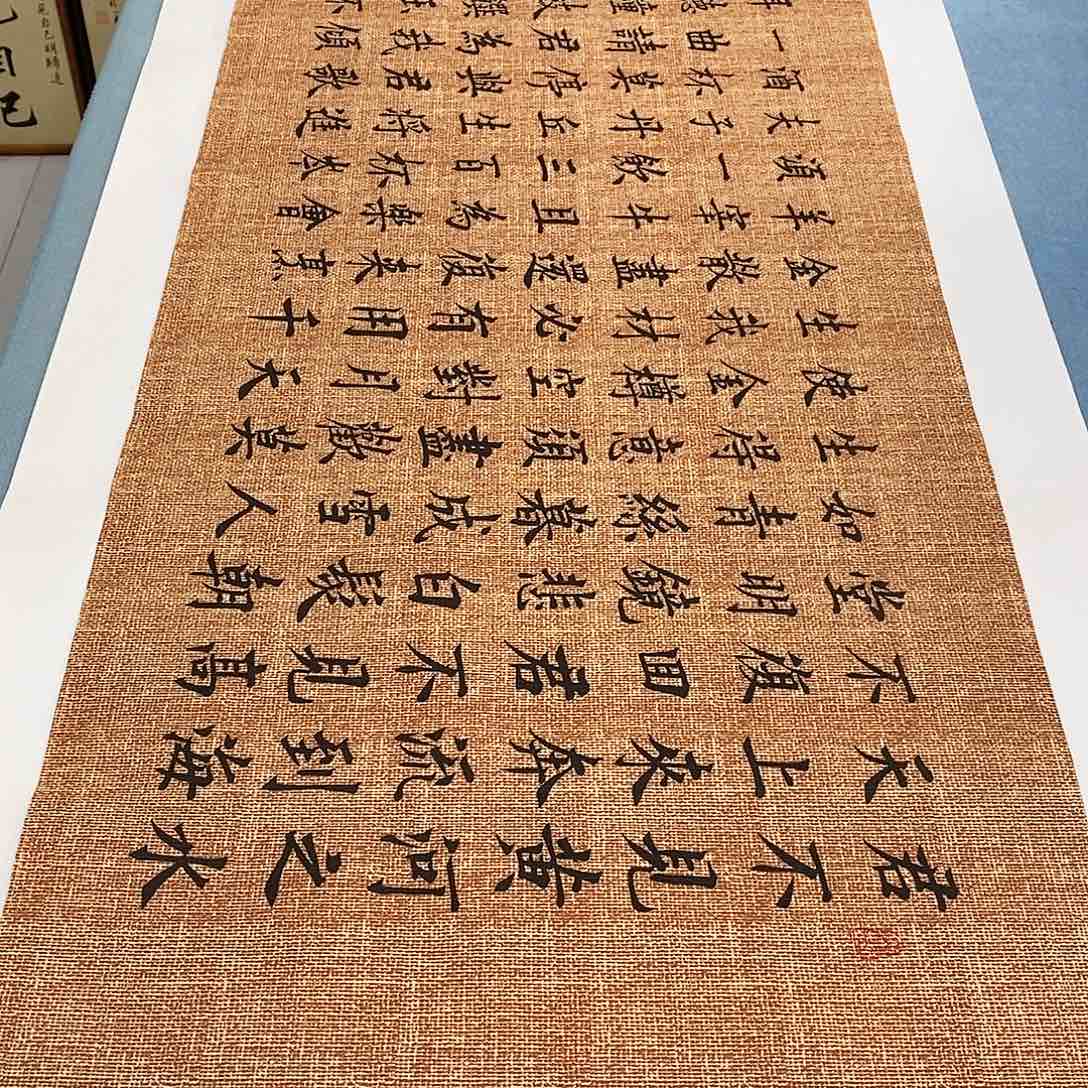 君不見黃河之水
天上來奔流到海
不復回君不見高
堂明鏡悲白髮朝
如青絲暮成雪人
生得意須盡歡莫
使金樽空對月天
生我材必有用千
金散盡還復來烹
羊宰牛且為樂會
須一飲三百杯岑
夫子丹丘生將進
酒杯莫停與君歌
一曲請君為我傾
耳聽鐘鼓饌玉不